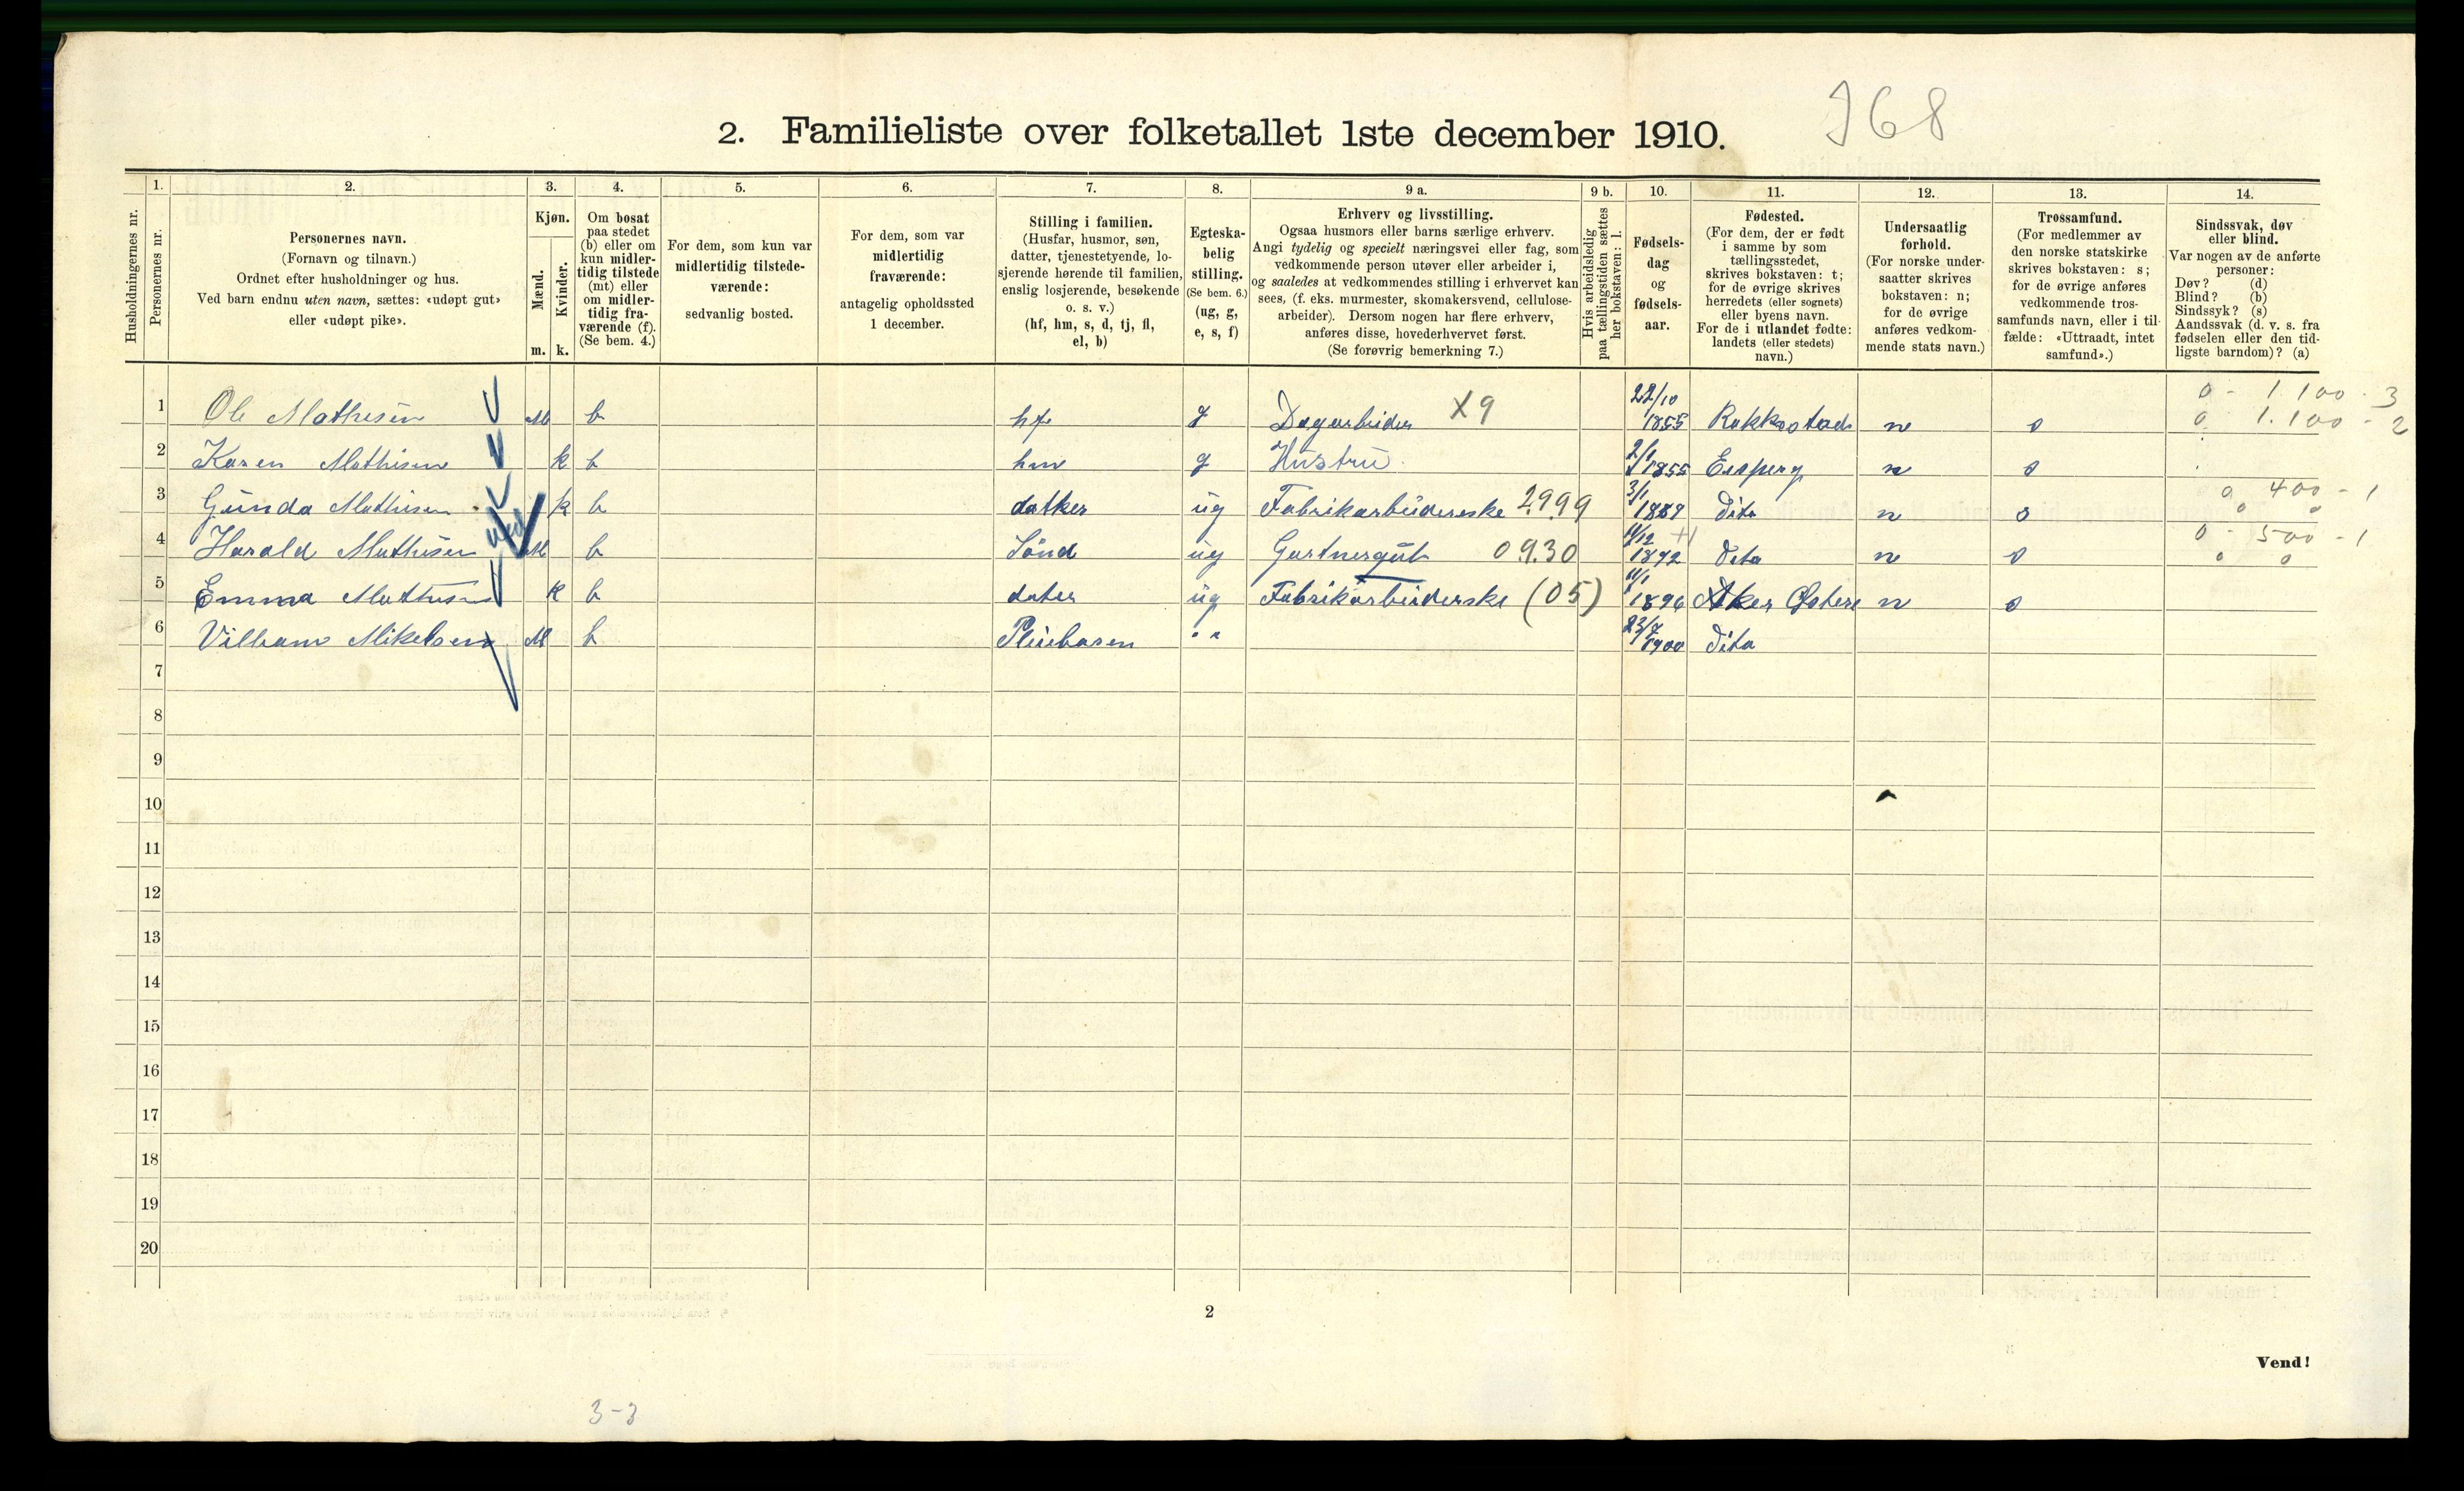 2. Familieliste over folketallet 1ste december 1910.
368
Husholdningernes nr.
1.
Personernes nr.
2.
Personernes navn.
(Fornavn og tilnavn.)
Ordnet efter husholdninger og hus.
Ved barn endnu uten navn, sættes: «udøpt gut»
eller «udøpt pike».
3.
Kjøn.
Mænd.
Kvinder.
m. k.
4.
Om bosat
paa stedet
(b) eller om
kun midler-
tidig tilstede
(mt) eller
om midler-
tidig fra-
værende (f).
(Se bem. 4.)
5.
For dem, som kun var
midlertidig tilstede-
værende:
sedvanlig bosted.
6.
For dem, som var
midlertidig
fraværende:
antagelig opholdssted
1 december.
7.
Stilling i familien.
(Husfar, husmor, søn,
datter, tjenestetyende, lo-
sjerende hørende til familien,
enslig losjerende, besøkende
o. s. v.)
(hf, hm, s, d, tj, fl,
el, b)
8.
Egteska-
belig
stilling.
(Se bem. 6.)
(ug, g,
e, s, f)
9 a.
Erhverv og livsstilling.
Ogsaa husmors eller barns særlige erhverv.
Angi tydelig og specielt næringsvei eller fag, som
vedkommende person utøver eller arbeider i,
og saaledes at vedkommendes stilling i erhvervet kan
sees, (f. eks. murmester, skomakersvend, cellulose-
arbeider). Dersom nogen har flere erhverv,
anføres disse, hovederhvervet først.
(Se forøvrig bemerkning 7.)
9 b.
Hvis arbeidsledig
paa tællingstiden sættes
her bokstaven: l.
10.
Fødsels-
dag
og
fødsels-
aar.
11.
Fødested.
(For dem, der er født
i samme by som
tællingsstedet,
skrives bokstaven: t;
for de øvrige skrives
herredets (eller sognets)
eller byens navn.
For de i utlandet fødte:
landets (eller stedets)
navn.)
12.
Undersaatlig
forhold.
(For norske under-
saatter skrives
bokstaven: n;
for de øvrige
anføres vedkom-
mende stats navn.)
13.
Trossamfund.
(For medlemmer av
den norske statskirke
skrives bokstaven: s;
for de øvrige anføres
vedkommende tros-
samfunds navn, eller i til-
fælde: «Uttraadt, intet
samfund».)
14.
Sindssvak, døv
eller blind.
Var nogen av de anførte
personer:
Døv? (d)
Blind? (b)
Sindssyk? (s)
Aandssvak (d. v. s. fra
fødselen eller den tid-
ligste barndom)? (a)
1 Ole Mathisen M b hf g Dagarbeider X9 22/10 1855 Rakkestad n s 0 - 1.100 - 3
0 1.100 - 2
2 Karen Mathisen k b hm g Hustru 2/1 1855 n s
3 Gunda Mathisen k b datter ug Fabrikarbeiderske 2999 3/1 1889 Dito n s 0 400 - 1
0 0
4 Harald Mathisen M b Sönd ug Gartnergut 09.30 1892 Dito n s 0 - 500 - 1
0 0
5 Emma Mathisen k b dater ug Fabrikarbeiderske (05) 11/1 1896 Aker Østere n s
6 Vilham Mikelsen M b Pleiebasen " 23/7 1900 Dito
7
8
9
10
11
12
13
14
15
16
17
18
19
20
2
Vend!
3-3